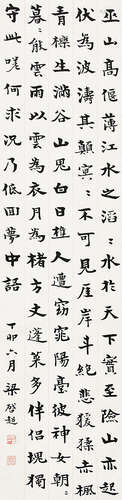 巫山高偃薄江水之滔〻水於天下實至險山亦起
伏為波濤其顛冥〻不可見崖岸斗絕悲猿猱赤楓
青櫟生滿谷山鬼白日樵人遭窈窕陽臺彼神女朝〻
暮〻能雲雨以雲為衣月為楮方丈蓬萊多伴侶塊獨
守此嗟何求況乃低回夢中語
丁卯六月 梁啟超